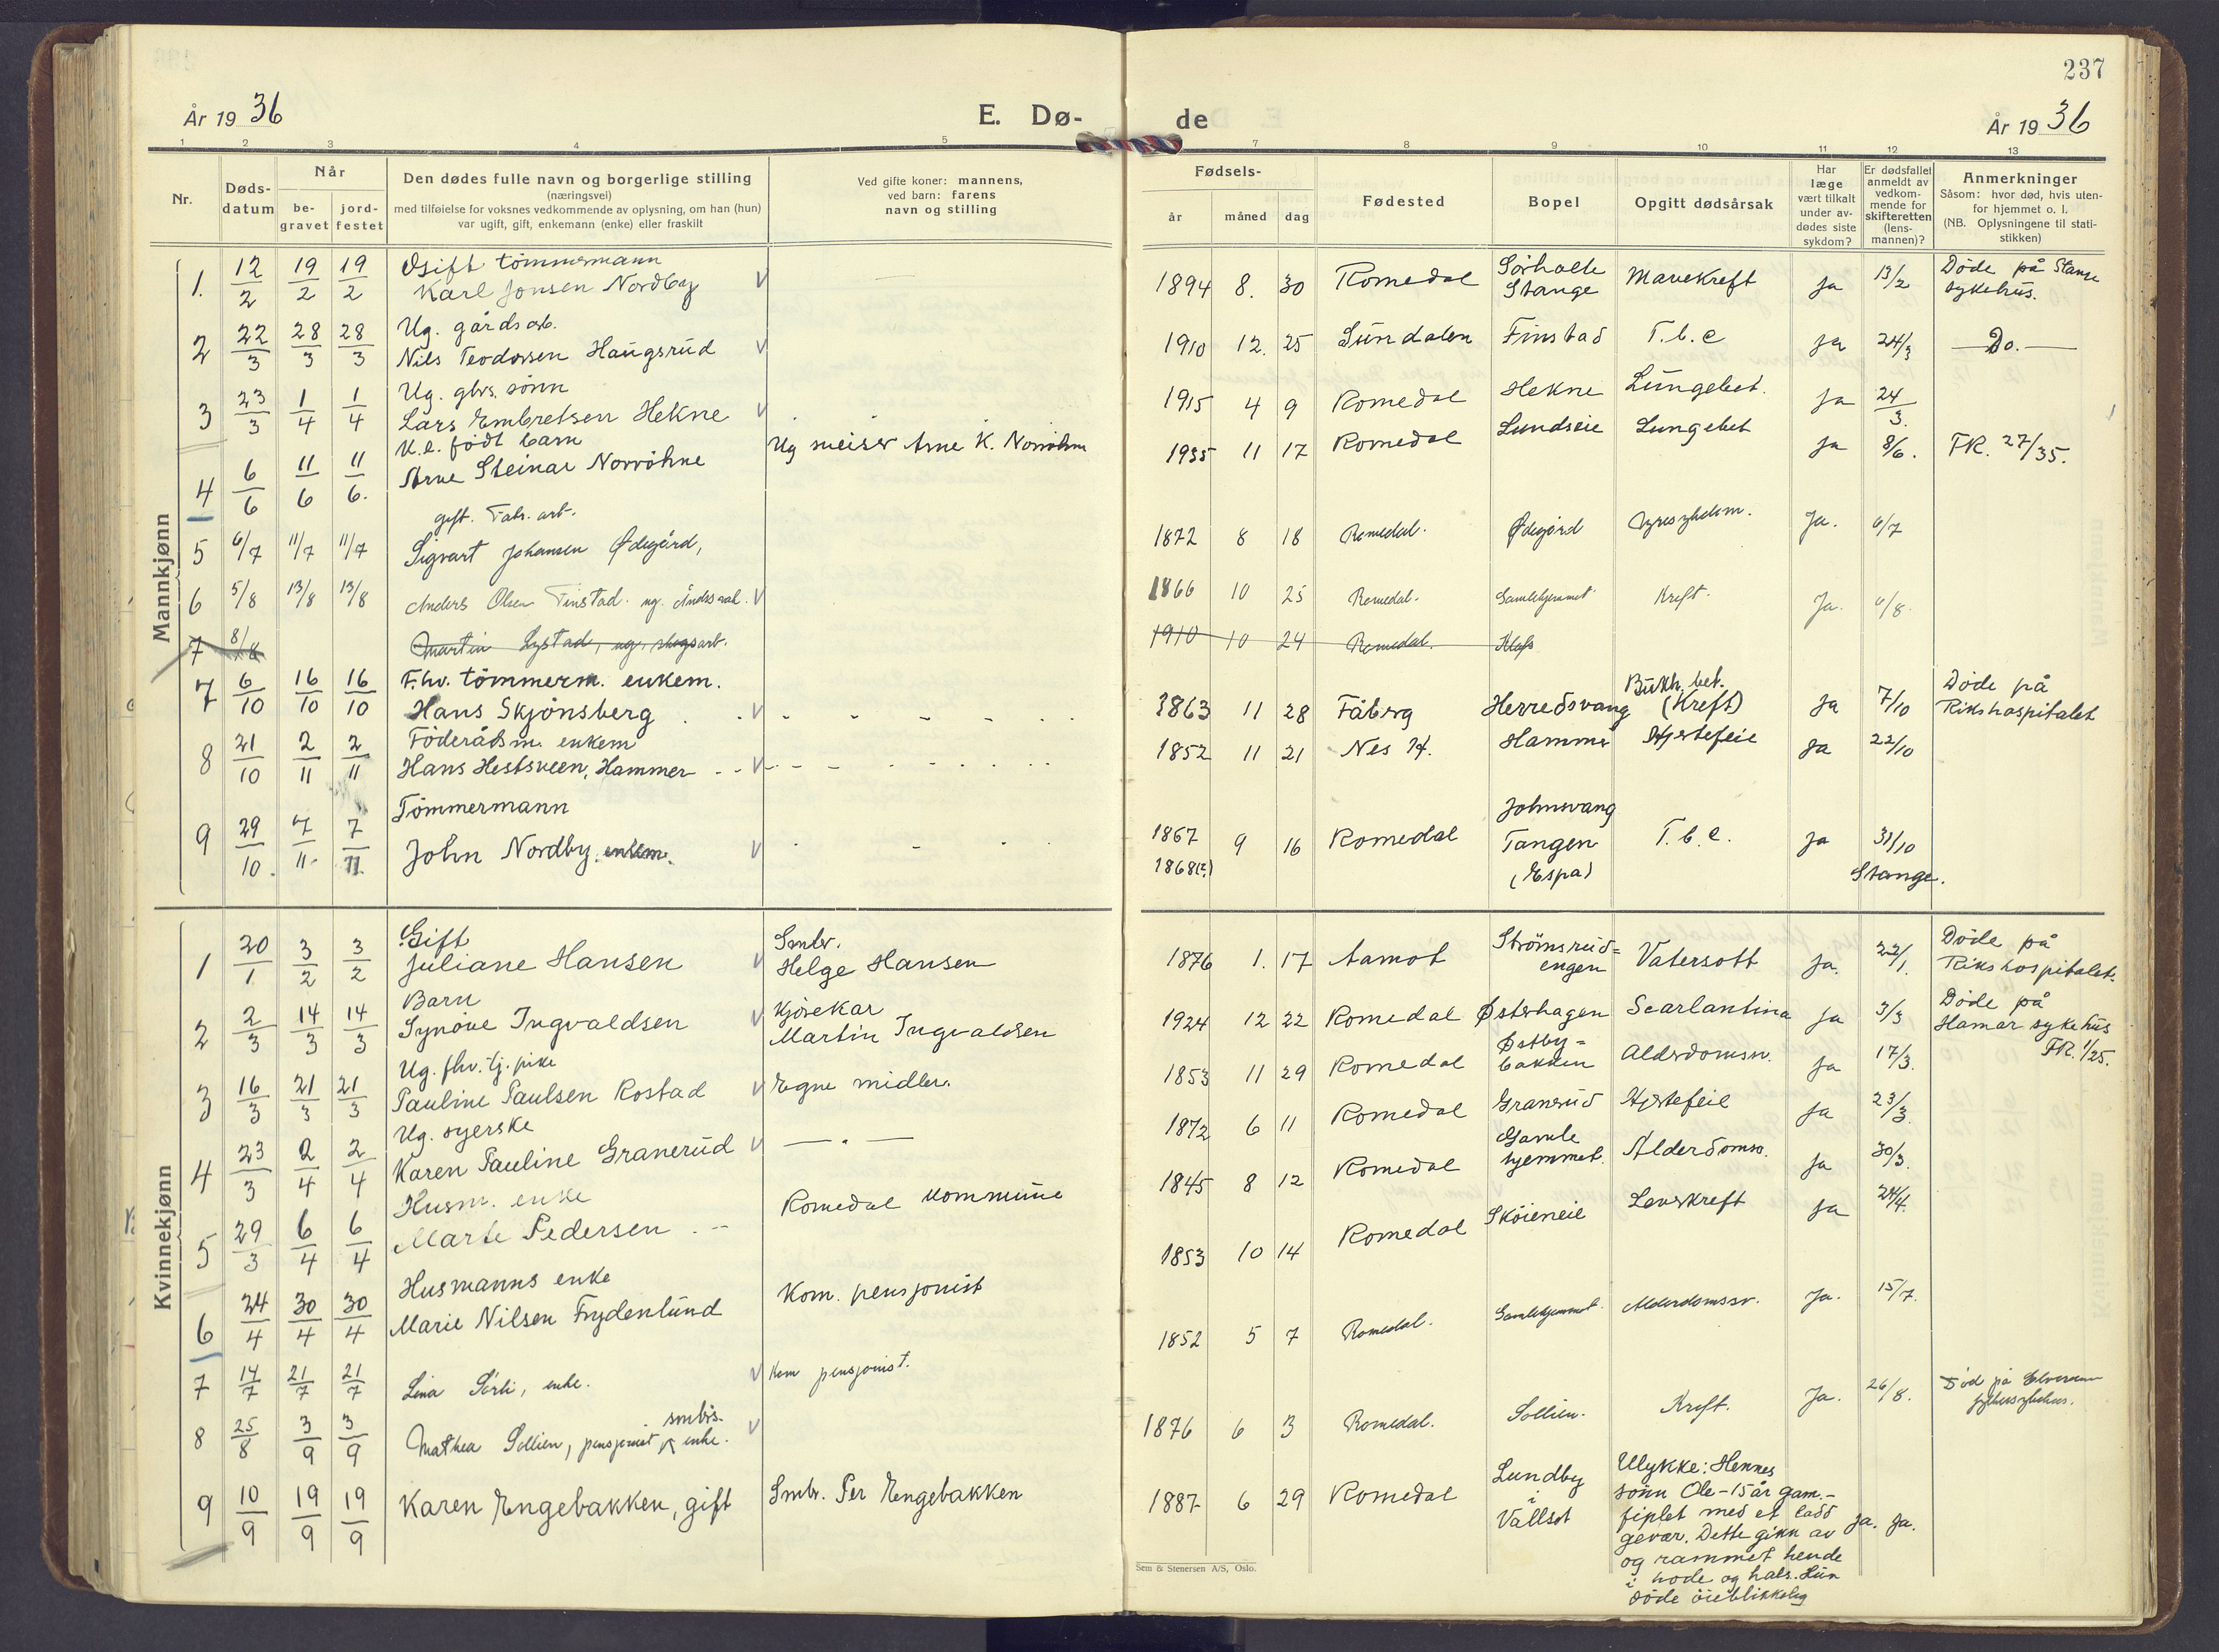 237
År 19 36 E. Dø- de År 19 36
1 2 3 4 5 7 8 9 10 11 12 13
Nr.
Døds-
datum
Når
be-
gravet
jord-
festet
Den dødes fulle navn og borgerlige stilling
(næringsvei)
med tilføielse for voksnes vedkommende av oplysning, om han (hun)
var ugift, gift, enkemann (enke) eller fraskilt
Ved gifte koner: mannens,
ved barn: farens
navn og stilling
Fødsels-
år måned dag
Fødested
Bopel
Opgitt dødsårsak
Har
læge
vært tilkalt
under av-
dødes siste
sykdom?
Er dødsfallet
anmeldt av
vedkom-
mende for
skifteretten
(lens-
mannen)?
Anmerkninger
Såsom: hvor død, hvis uten-
for hjemmet o. l.
(NB. Oplysningene til stati-
stikken)
Mannkjønn
1. 12/2 19/2 19/2 Gift tömmermann
Karl Jonsen Nordby 1894 8. 30 Romedal Sörholte
Stange Mavekreft ja 13/2 Döde på Stange
sykehus.
2 22/3 28/3 28/3 Ug. gårdsarb.
Nils Teodorsen Haugsrud 1910 12. 25 Sundalen Finstad T.b.c ja 24/3 Do.
3 23/3 1/4 1/4 Ug. gbrs. sönn
Lars Embretsen Hekne 1915 4 9 Romedal Hekne Lungebet. ja 24/3.
4 6/6 11/6 11/6. U.e. födt barn
Arne Steinar Norröhne Ug meiser Arne K. Norröhne 1935 11 17 Romedal Lundseie Lungebet ja 8/6. FR. 27/35.
5 6/7 11/7 11/7 gift. Fabr. arb.
Sigvart Johansen Ødegård, 1872 8 18 Romedal. Ødegård Ja. 6/7
6 5/8 13/8 13/8 Anders Olsen Finstad. ug. 1866 10 25 Romedal. Gamlehjemmet Kreft. Ja. 6/8.
7 8/8 Martin Lystad, ug. skogsarb. 1910 10 24 Romedal. Kløfs
7 6/10 16/10 16/10 F.hv. tömmerm. enkem.
Hans Skjönsberg 1863 11 28 Fåberg Herredsvang Bukh. bet.
(Kreft) ja 7/10 Döde på
Rikshospitalet
8 21/10 2/11 2/11 Föderådsm. enkem
Hans Hestsveen, Hammer 1852 11 21 Nes H. Hammer Hjertefeil ja 22/10
9 29/10. 7/11 7/11 Tömmermann
John Nordby, enkem. 1867
1868(?) 9 16 Romedal Johnsvang
Tangen
(Espa) T.b.c. ja 31/10
Stange.
Kvinnekjønn
1 20/1 3/2 3/2 Gift
Juliane Hansen Smbr.
Helge Hansen 1876 1. 17 Aamot Strömsrud=
engen Vatersott Ja. 22/1. Döde på
Rikshospitalet.
2 2/3 14/3 14/3 Barn
Synöve Ingvaldsen Kjörekar
Martin Ingvaldsen 1924 12 22 Romedal Østerhagen Scarlantina ja 3/3 Döde på
Hamar sykehus
FR. 1/25.
3 16/3 21/3 21/3 Ug. fhv. tj. pike
Pauline Paulsen Rostad Egne midler. 1853 11 29 Romedal Østby=
bakken Alderdomssv. ja 17/3.
4 23/3 2/4 2/4 Ug. syerske
Karen Pauline Granerud — " — 1872 6 11 Romedal Granerud Hjertefeil ja 23/3.
5 29/3 6/4 6/4 Husm. enke
Marte Pedersen Romedal kommune 1845 8 12 Romedal Gamle
hjemmet. Alderdomsv. ja 30/3.
6 24/4 30/4 30/4 Husmanns enke
Marie Nilsen Frydenlund Kom. pensjonist 1853 10 14 Romedal Sköieneie Leverkreft ja 24/4.
7 14/7 21/7 21/7 Lina Sörli, enke. Kom pensjonist. 1852 5 7 Romedal. Gamlehjemmet. Alderdomssv. Ja. 15/7.
8 25/8 3/9 3/9 Mathea Sollien, pensjonist smbrs. enke. 1876 6 3 Romedal. Sollien. Kreft. Ja. 26/8. Död på Elverum
fylkessykehus.
9 10/9 19/9 19/9 Karen Engebakken, gift Smbr. Per Engebakken 1887 6 29 Romedal Lundby
i
Vallset Ulykke: Hennes
sönn Ole - 15 år gam. -
fiplet med et ladd
gevær. Dette gikk av
og rammet hende
i hode og hals. Hun
döde öieblikkelig ja. ja.
Sem & Stenersen A/S, Oslo.